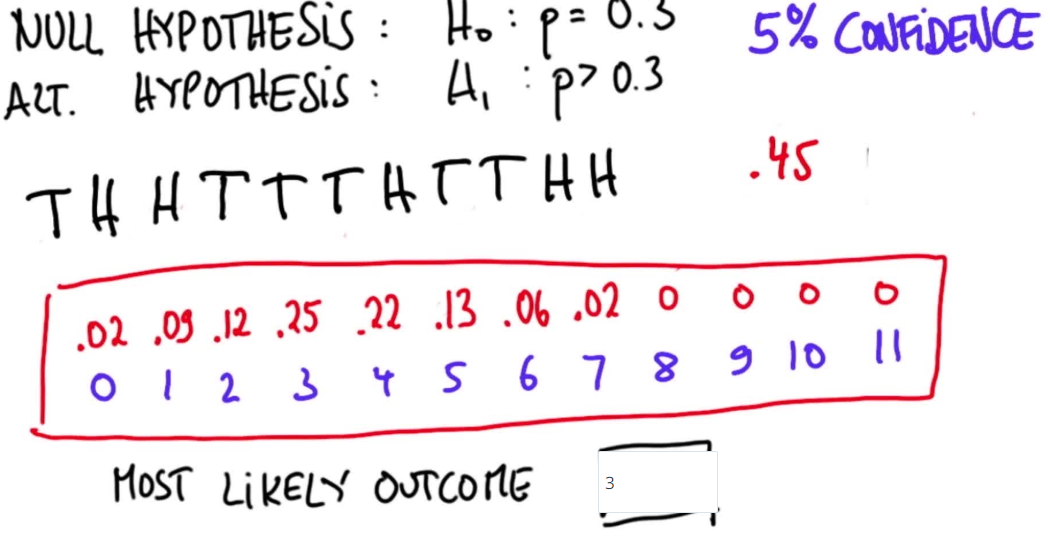 NULL HYPOTHESIS : H₀ : p = 0.3 5% CONFIDENCE
ALT. HYPOTHESIS : H₁ : p > 0.3
T H H T T T H T T H H .45
.02 .09 .12 .25 .22 .13 .06 .02 0 0 0 0
0 1 2 3 4 5 6 7 8 9 10 11
MOST LIKELY OUTCOME 3